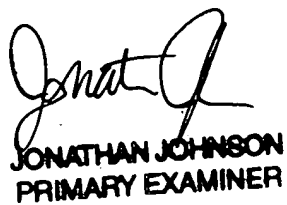 Jonathan J
JONATHAN JOHNSON
PRIMARY EXAMINER